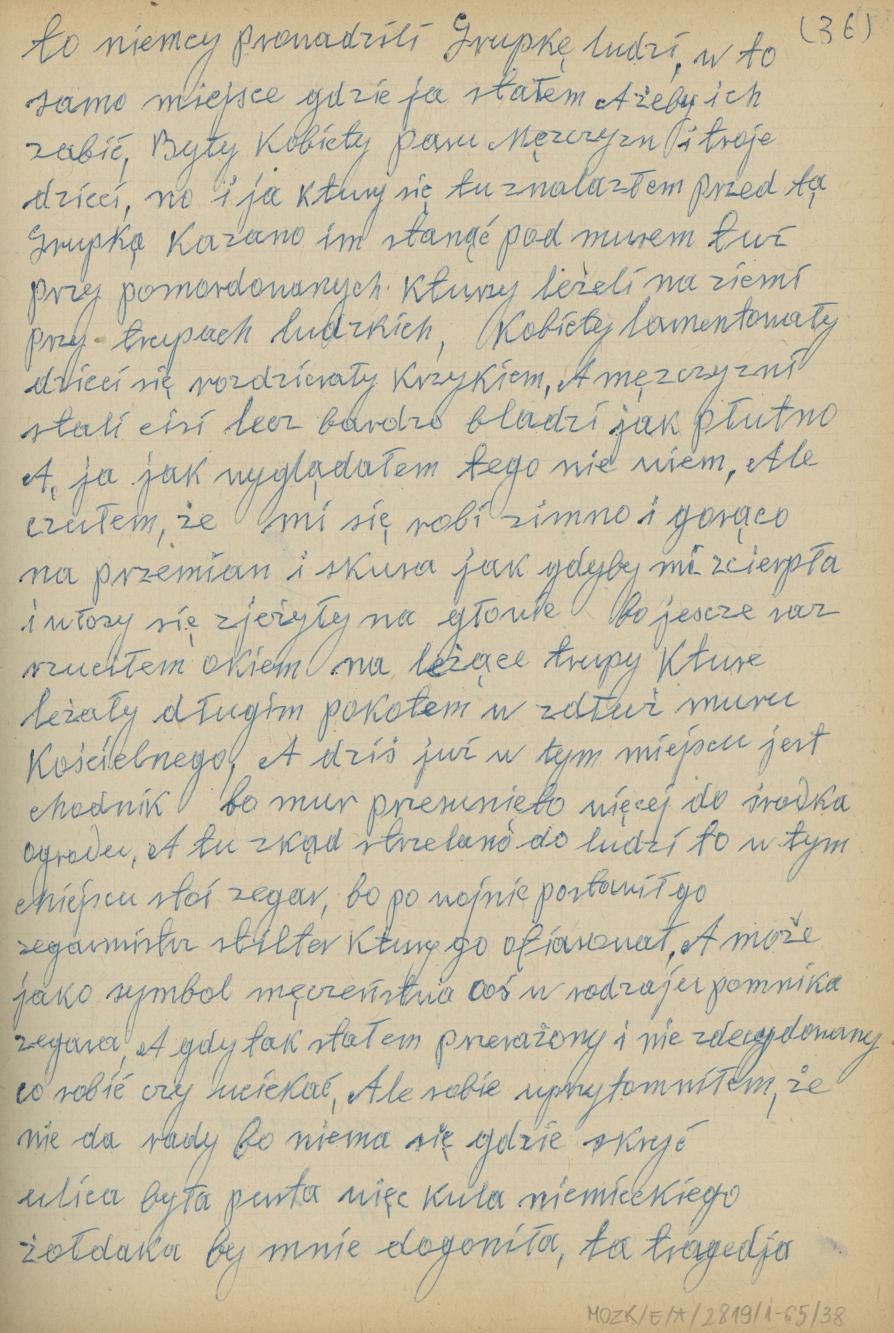 (36)
to niemcy prowadzili Grupkę ludzi, w to
samo miejsce gdzie ja stałem Ażeby ich
zabić, Były Kobiety paru Męzczyzn i troje
dzieci, no i ja ktury się tu znalazłem przed tą
Grupką Kazano im stanąć pod murem tuż
przy pomordowanych Kturzy leżeli na ziemi
przy trupach ludzkich, Kobiety lamentowały
dzieci się rozdzierały Krzykiem, A męzczyzni
stali cisi lecz bardzo bladzi jak płutno
A, ja jak wyglądałem tego nie wiem, Ale
czułem, że mi się robi zimno i gorąco
na przemian i skura jak gdyby mi zcierpła
i włosy się zjeżyły na głowie bo jescze raz
rzuciłem okiem na leżące trupy Kture
leżały długim pokotem w zdłuż muru
Kościelnego, A dziś już w tym miejscu jest
chodnik bo mur przesunięto więcej do środka
ogrodu, A tu zkąd strzelano do ludzi to w tym
Miejscu stoi zegar, bo po wojnie postawił go
zegarmistrz stilter Ktury go ofiarował, A może
jako symbol męczeństwa coś w rodzaju pomnika
zegara, A gdy tak stałem przerażony i nie zdecydowany
co robić czy uciekać, Ale sobie uprzytomniłem, że
nie da rady bo niema się gdzie skryć
ulica była pusta więc kula niemieckiego
żołdaka by mnie dogoniła, ta tragedja
MOZK/E/A/2819/1-65/38